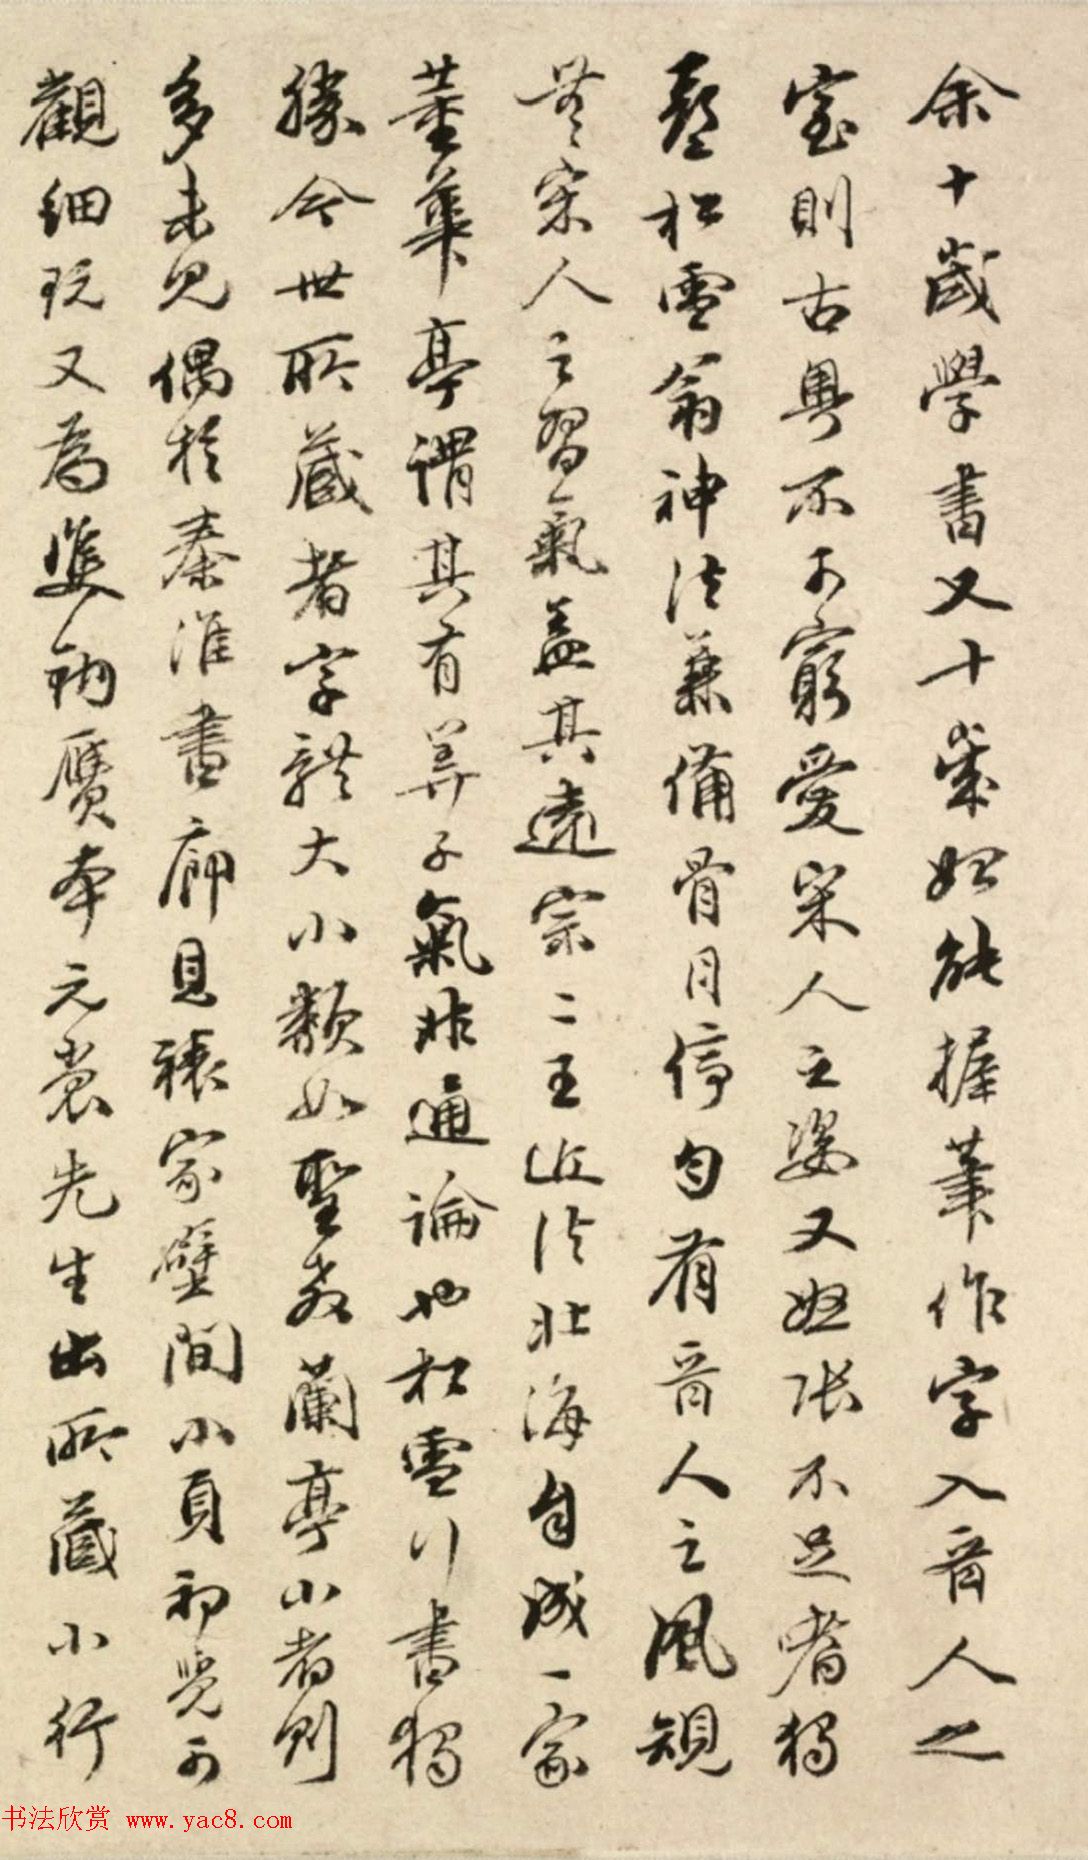 余十歲學書又十歲始能握筆作字入晉人之
室則古奧不可窮愛宋人之姿又怒張不足嗜獨
松雪翁神法兼備骨肉停勻有晉人之風規
無宋人之習氣蓋其遠宗二王近法北海自成一家
董華亭謂其有算子氣非通論也松雪行書獨
勝今世所藏者字體大小類如聖教蘭亭小者則
多未見偶於秦淮書廊見裱家壁間小頁初覺可
觀細玩又為雙鉤贋本元裳先生出所藏小行
书法欣赏 www.yac8.com